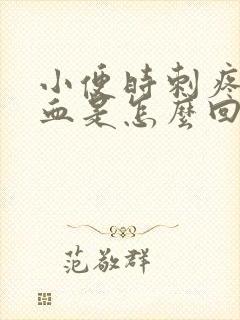 小便時刺疼
血是怎麼回
范敬群